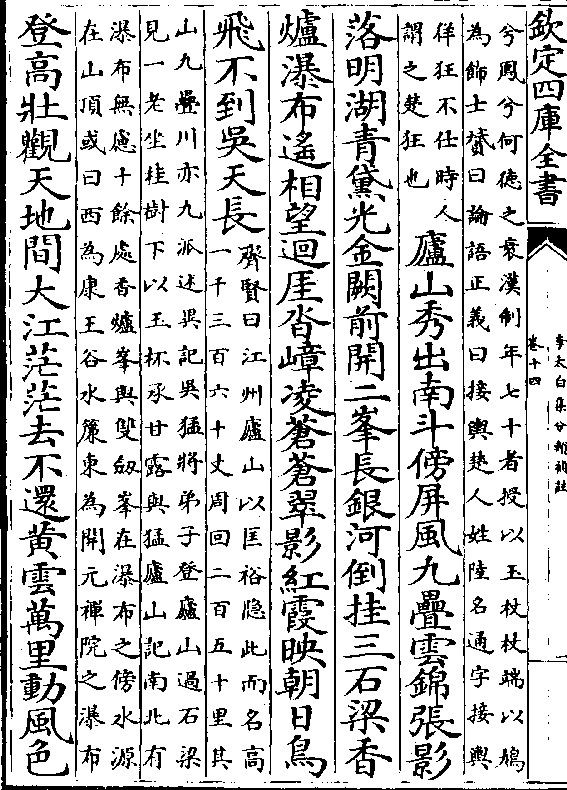 欽定四庫全書
李太白集分類補註
卷十四
兮鳳兮何徳之衰漢制年七十者授以玉杖杖端以鳩
為飾士贇曰論語正義曰接輿楚人姓陸名通字接輿
佯狂不仕時人
謂之楚狂也
廬山秀出南斗傍屏風九疊雲錦張影
落明湖青黛光金闕前開二峯長銀河倒挂三石梁香
爐瀑布遙相望迴厓沓嶂凌蒼蒼翠影紅霞映朝日鳥
飛不到吳天長
齊賢曰江州廬山以匡裕隐此而名高
一千三百六十丈周回二百五十里其
山九疊川亦九派述異記吳猛將弟子登廬山過石梁
見一老坐桂樹下以玉杯承甘露與猛廬山記南北有
瀑布無慮十餘處香爐峯與雙劔峯在瀑布之傍水源
在山頂或曰西為康王谷水簾東為開元禪院之瀑布
登高壯觀天地間大江茫茫去不還黄雲萬里動風色